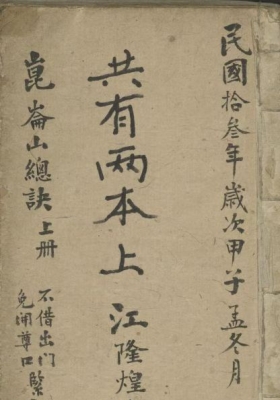 民國拾叁年歲次甲子孟冬月
共有两本上江隆煌
崑崙山總訣上册
不借出門
免開尊口緊